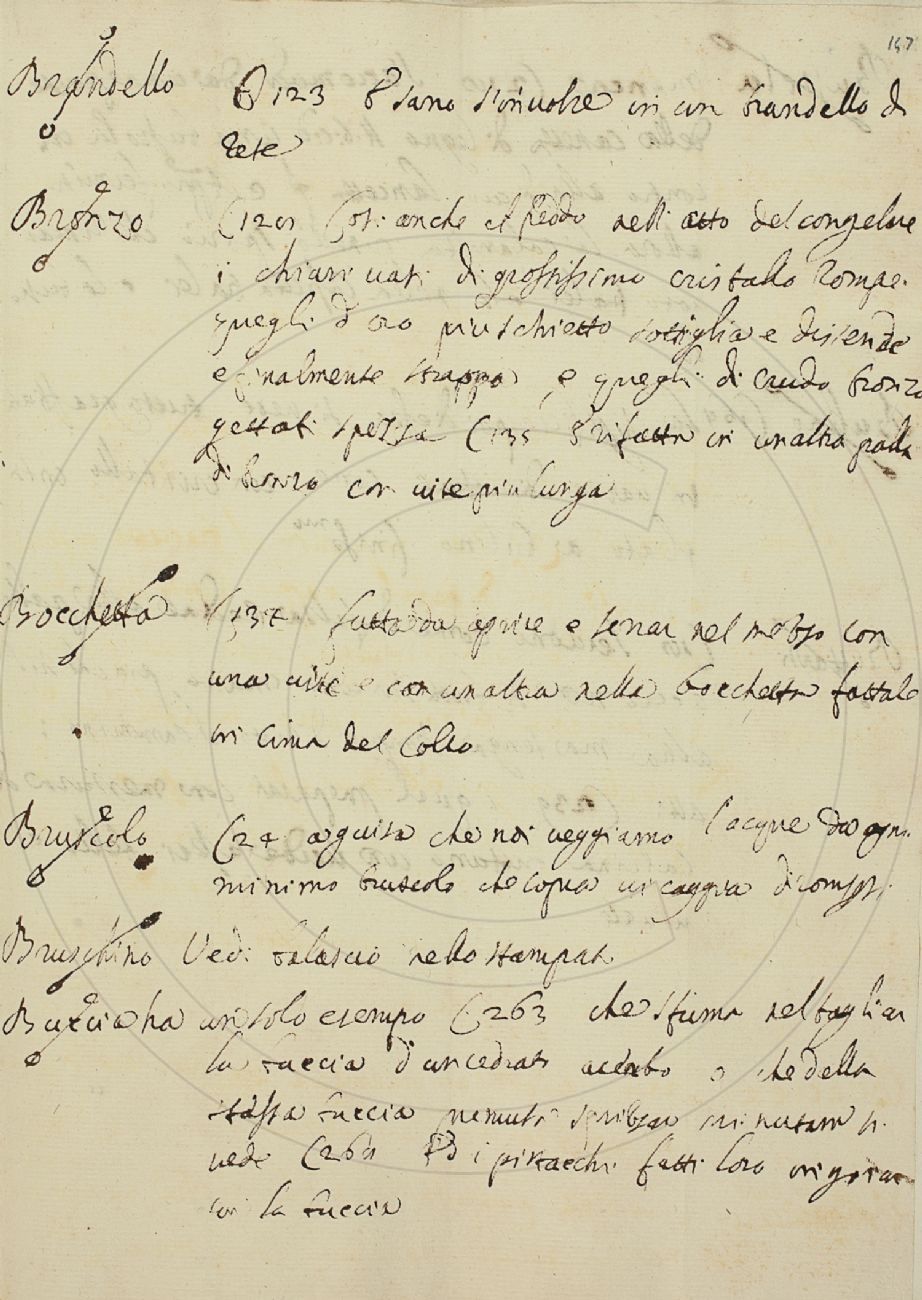 147
Brandello C 123 E sano s'involse in un brandello di
rete
Bronzo C 120 Così anche il freddo nell'atto del congelare
i chiari vasi di grossissimo cristallo rompe
quegli d'oro piu schietto sottiglia e distende
e finalmente strappa, e quegli di crudo bronzo
gettati spezza C 135 E rifatta un'altra palla
di bronzo con vite piu lunga
Bocchetta C 137 fatta da aprire e serrar nel mezzo con
una vite e con un altra nella bocchetta fattale
in cima del Collo
Bruscolo C 24 a guisa che noi veggiamo l'acque da ogni
minimo bruscolo che sopra vi caggia
Bruschino Vedi nello stampato
Buccia ha un solo esempo C 263 che sfuma nel tagliar
la buccia d'un cedrato acerbo o che della
stessa buccia premuta sprizza minutam si
vede C 264 i pistacchi fatti loro
la buccia